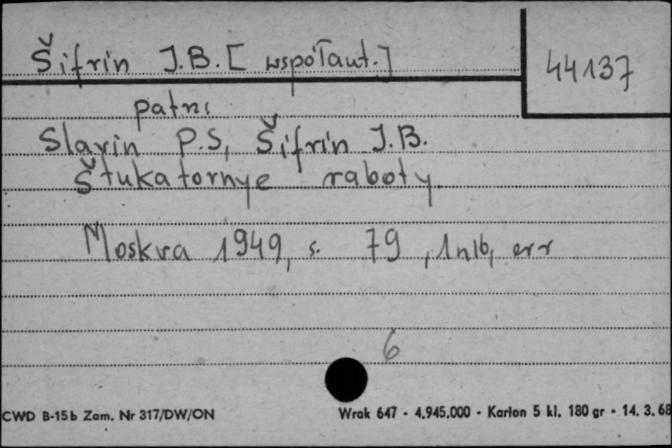 Šifrin J.B. [współaut.]
44137
patrz
Slavin P.S, Šifrin J.B.
Štukatornye raboty.
Moskva 1949, s. 79, 1nlb, err
6
CWD B-15b Zam. Nr 317/DW/ON
Wrak 647 - 4.945.000 - Karton 5 kl. 180 gr - 14. 3. 68